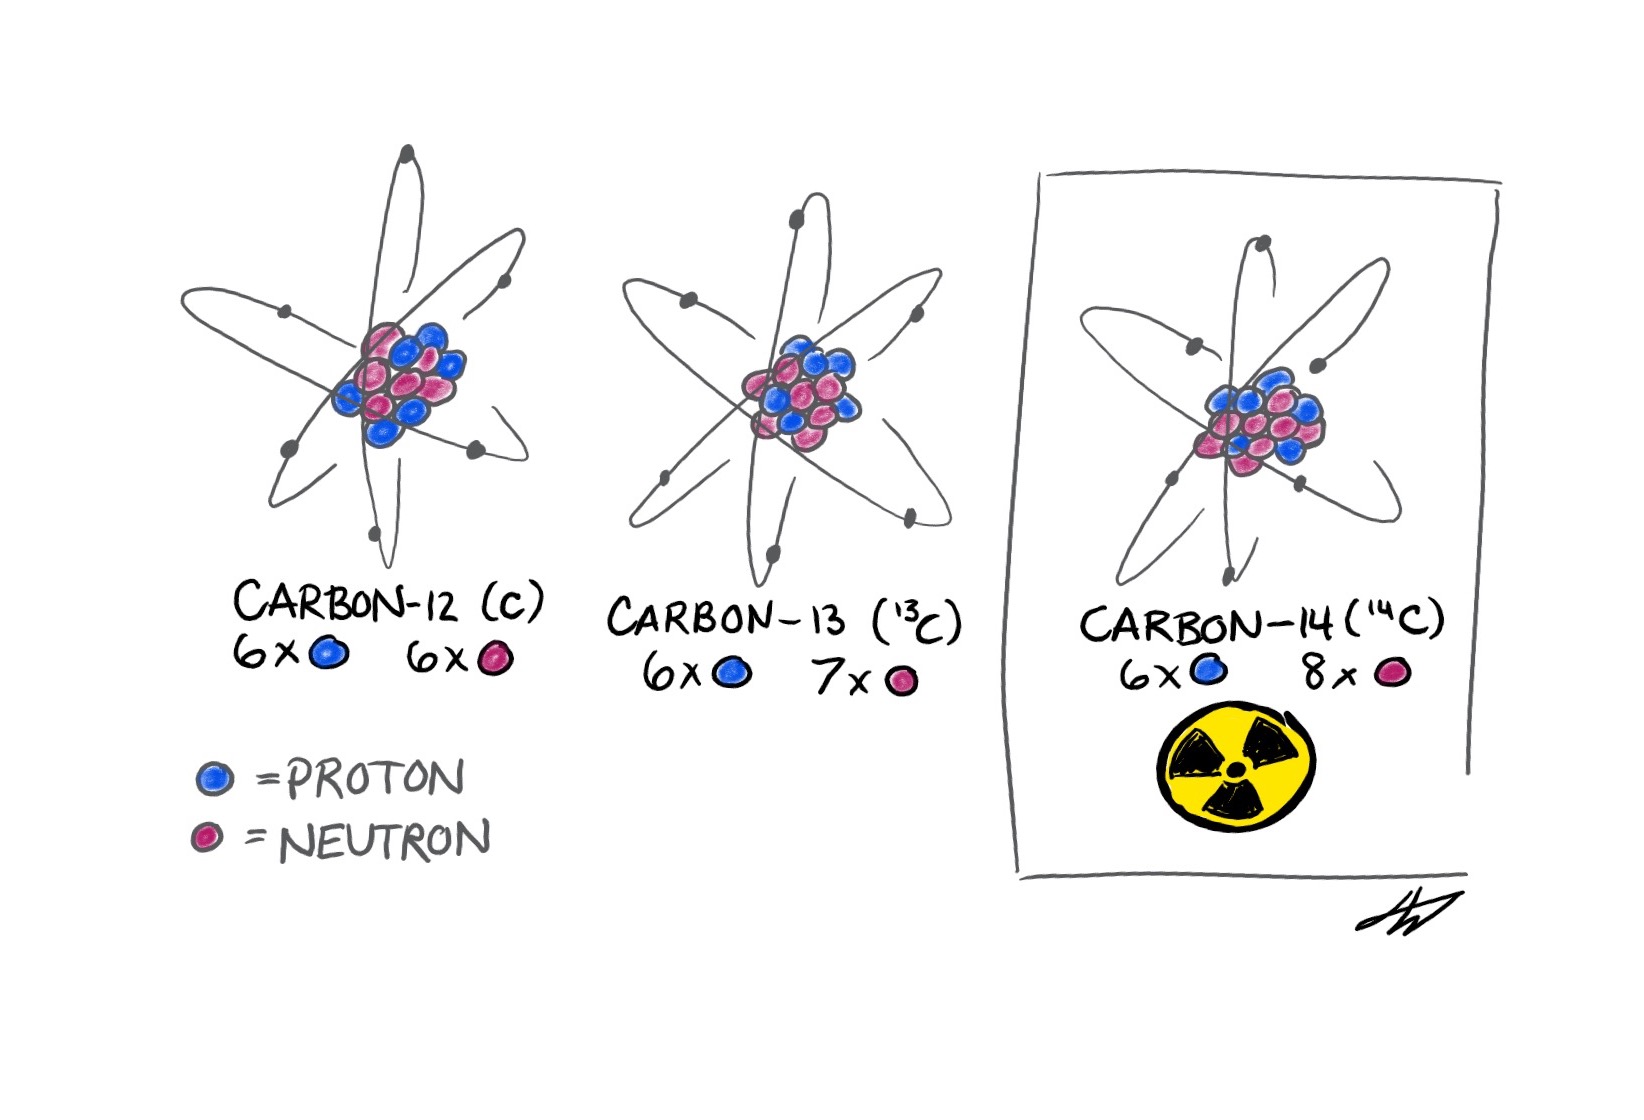 CARBON-12 (C)
6x 6x
CARBON-13 (¹³C)
6x 7x
CARBON-14 (¹⁴C)
6x 8x
=PROTON
=NEUTRON